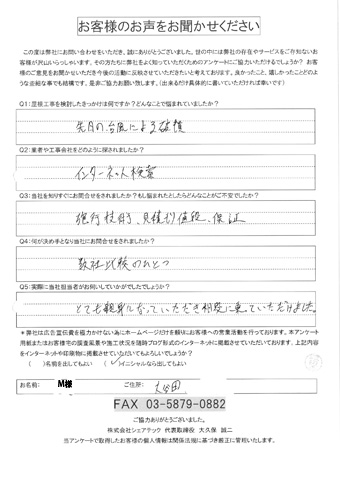 お客様のお声をお聞かせください
この度は弊社にお問い合わせをいただき、誠にありがとうございました。世の中には弊社の存在やサービスをご存知ないお
客様が沢山いらっしゃいます。その方たちに弊社をよく知っていただくためのアンケートにご協力いただけるでしょうか？ お客
様のご意見をお聞かせいただき今後の活動に反映させていただきたいと考えております。良かったこと、嬉しかったことどのよう
な些細な事でも結構です。是非ご協力お願い致します。（出来るだけ具体的に書いていただければ幸いです）
Q1:屋根工事を検討したきっかけは何ですか？どんなことで悩まれていましたか？
先月の台風による破損
Q2:業者や工事会社をどのように探されましたか？
インターネット検索
Q3:当社を知りすぐにお問合せをされましたか？もし悩まれたとしたらどんなことがご不安でしたか？
施行技術、見積り値段、保証
Q4:何が決め手となり当社にお問合せをされましたか？
数社比較のひとつ
Q5:実際に当社担当者がお伺いしていかがでしたでしょうか？
とても親身になっていただき相談に乗っていただけました。
＊弊社は広告宣伝費を極力かけない為にホームページだけを頼りにお客様への営業活動を行っております。本アンケート
用紙またはお客様宅の調査風景や施工状況を随時ブログ形式のインターネットに掲載させていただいております。上記内容
をインターネットや印刷物に掲載させていただいてもよろしいでしょうか？
（ ）名前を出してもよい （✓）イニシャルなら出してもよい
お名前: M様 ご住所: 大谷田
FAX 03-5879-0882
ご協力ありがとうございました。
株式会社シェアテック 代表取締役 大久保 誠二
当アンケートで取得したお客様の個人情報は関係法規に基づき厳正に管理いたします。